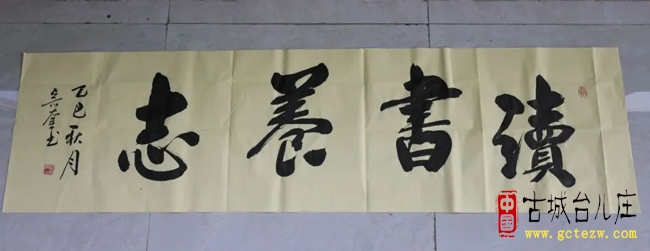 讀書養志
乙巳秋月
中國
古城台儿庄
www.gctezw.com